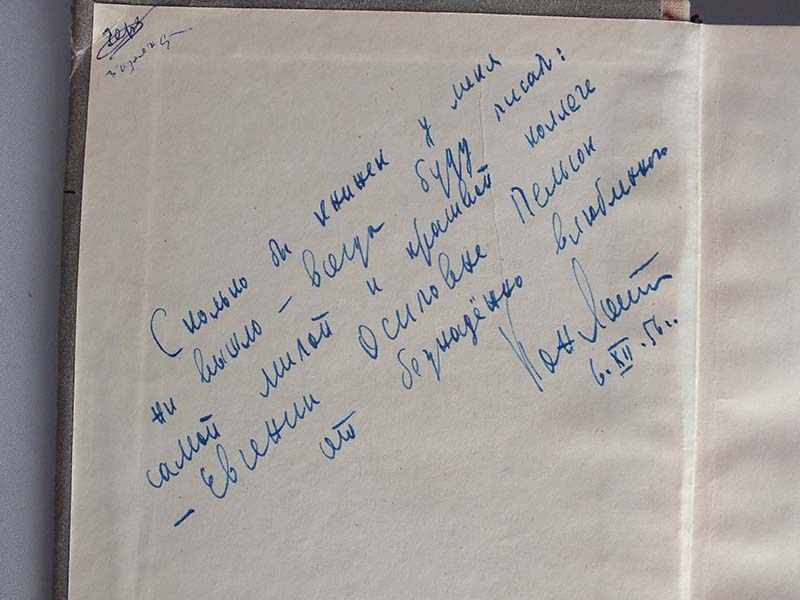 Сколько бы книжек у меня
ни вышло – всегда буду писать:
самой милой и красивой коллеге
– Евгении Осиповне Пельсон
от безнадёжно влюбленного
6.XII.56г.